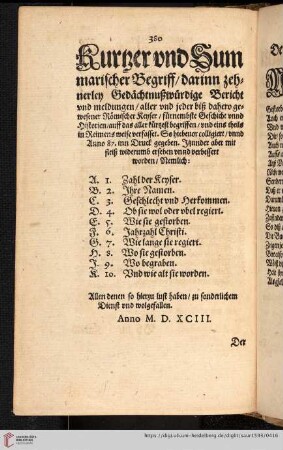 380
Kurtzer vnd Sum
marischer Begriff / darinn zeh-
nerley Gedächtnußwürdige Bericht
vnd meldungen / aller vnd jeder biß dahero ge-
wesener Römischer Keyser / fürnembste Geschicht vnnd
Historien / auff das aller kürtzst begriffen / vnd eins theils
in Reimens weise verfasset. So hiebevor colligirt / vnnd
Anno 87. inn Druck gegeben. Jtzunder aber mit
fleiß widerumb ersehen vnnd verbessert
worden / Nemlich:
A. 1. Zahl der Keyser.
B. 2. Jhre Namen.
C. 3. Geschlecht vnd Herkommen.
D. 4. Ob sie wol oder vbel regiert.
E. 5. Wie sie gestorben.
F. 6. Jahrzahl Christi.
G. 7. Wie lange sie regiert.
H. 8. Wo sie gestorben.
J. 9. Wo begraben.
K. 10. Vnd wie alt sie worden.
Allen denen so hierzu lust haben / zu sonderlichem
Dienst vnd wolgefallen.
Anno M. D. XCIII.
Der